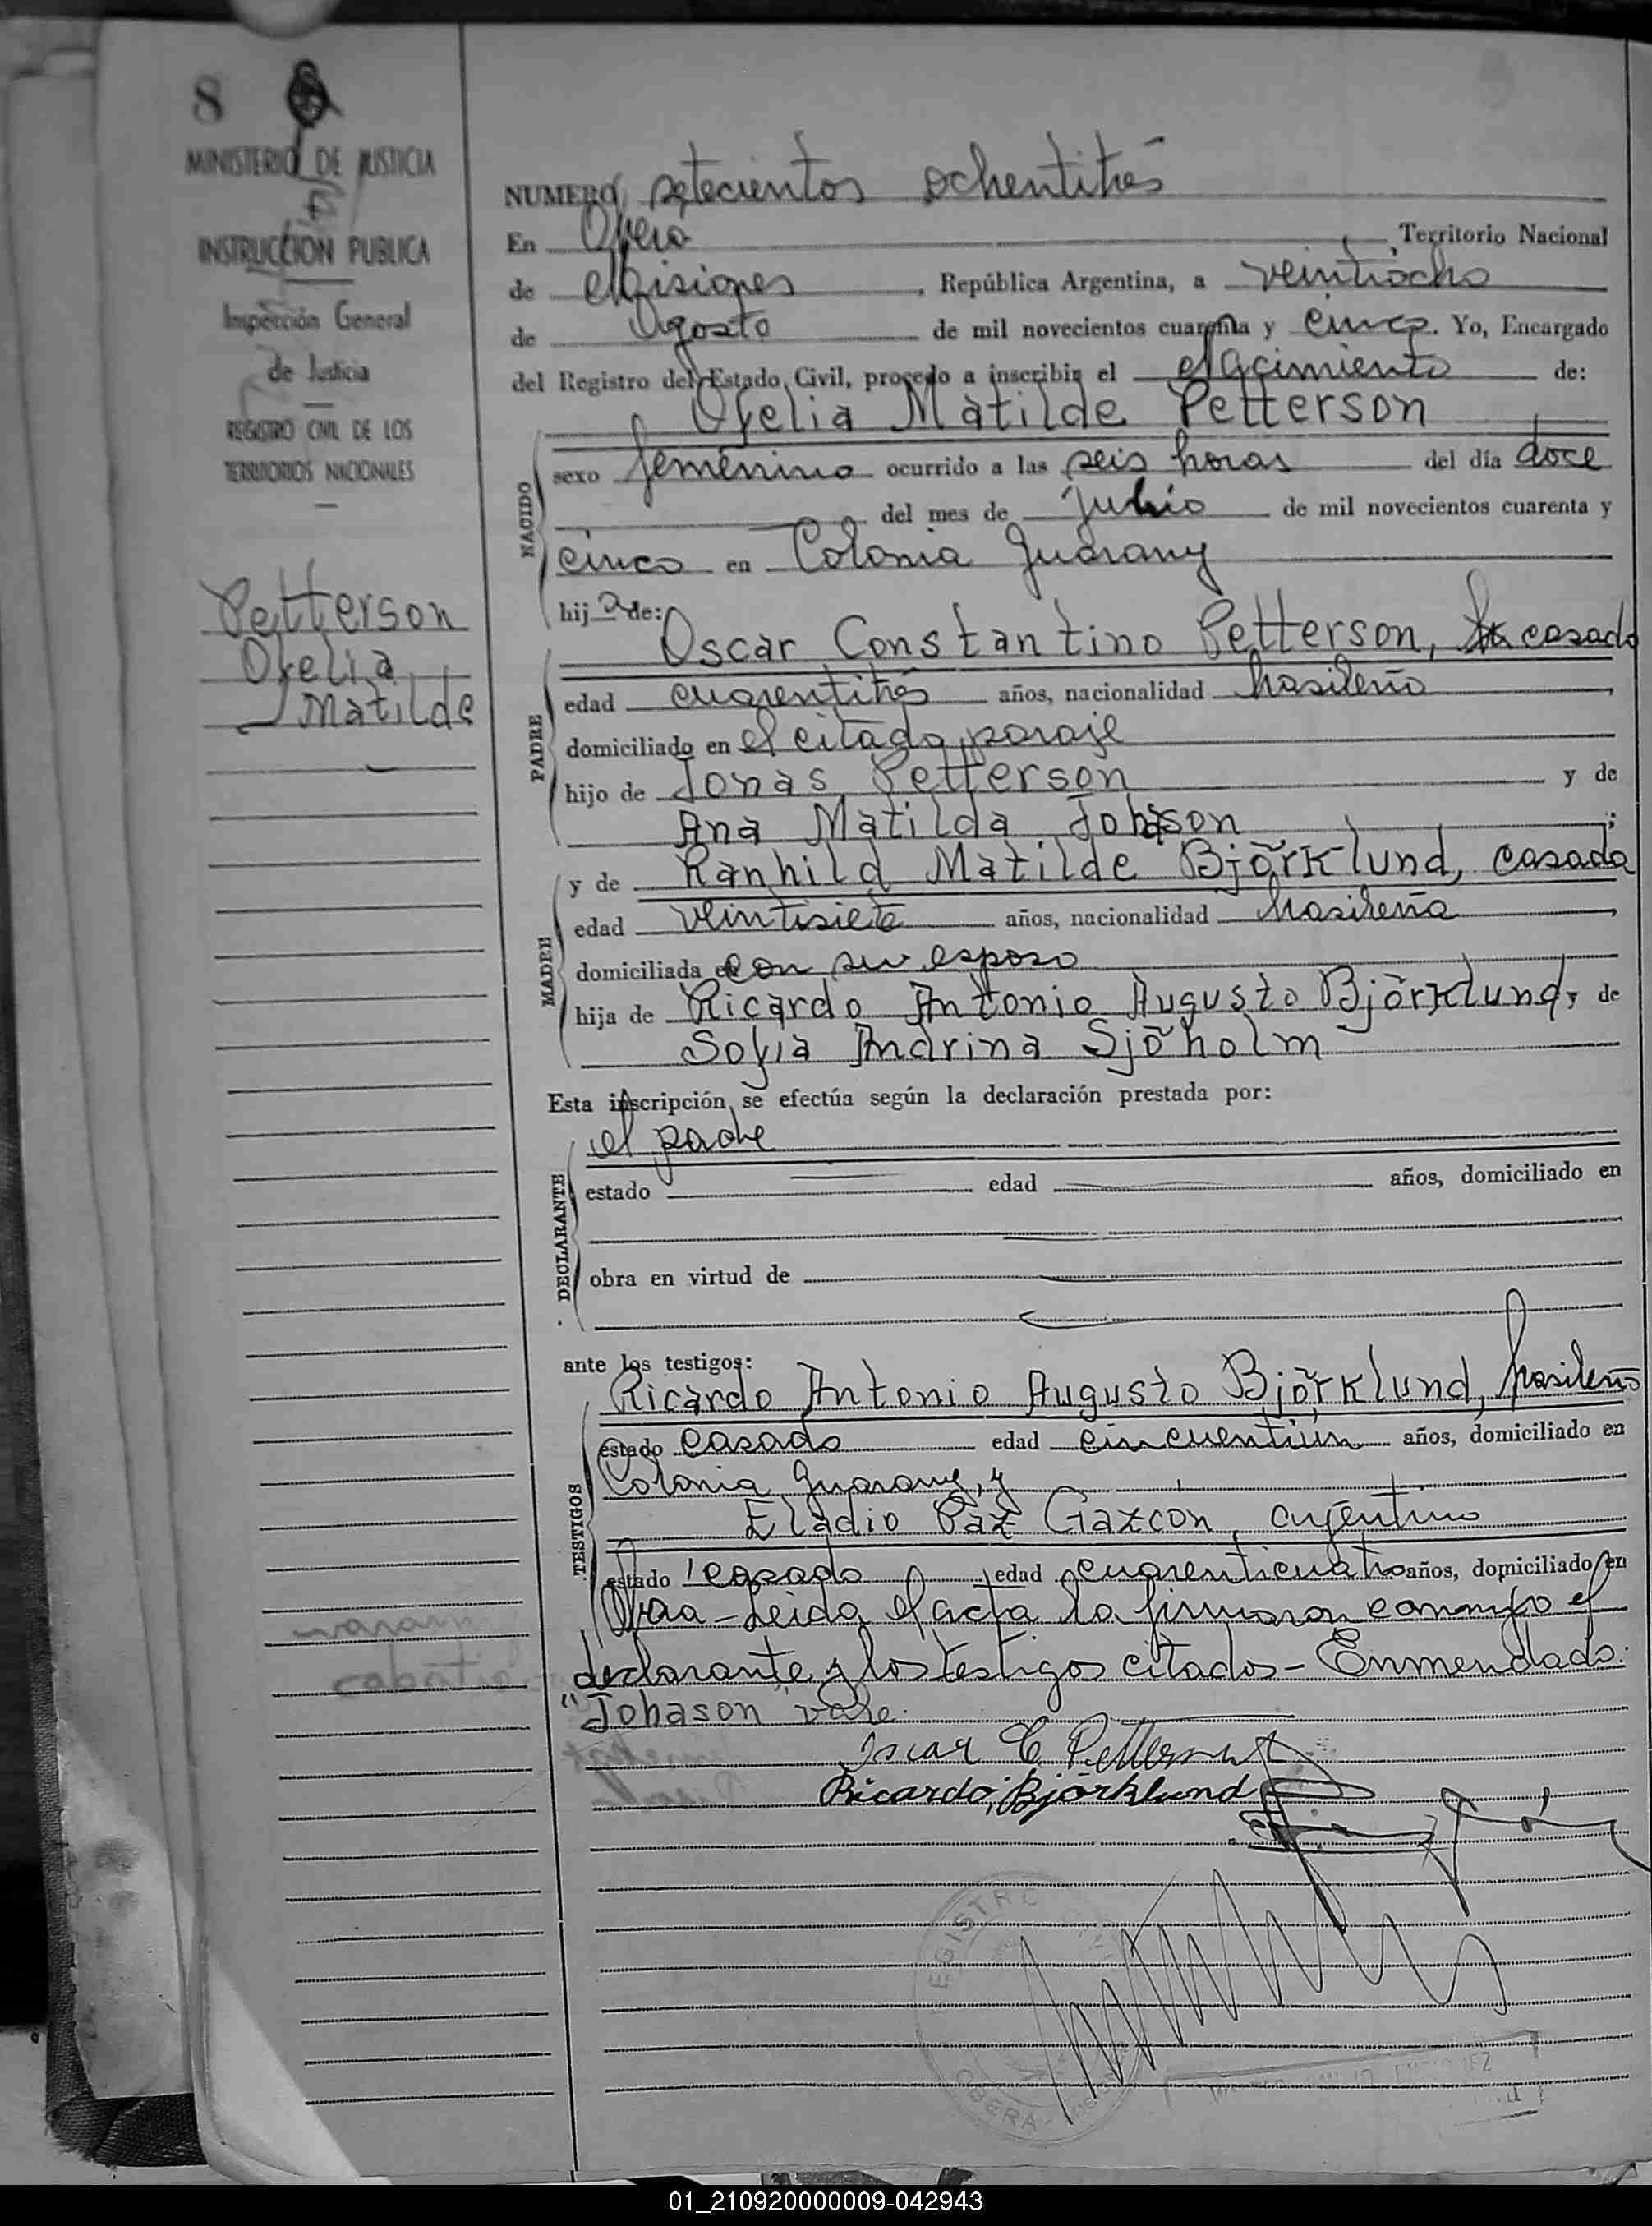 8
MINISTERIO DE JUSTICIA
E
INSTRUCCION PUBLICA
Inspección General
de Justicia
REGISTRO CIVIL DE LOS
TERRITORIOS NACIONALES
Petterson
Ofelia
Matilde
NUMERO setecientos ochentitrés
En Oberá, Territorio Nacional
de Misiones, República Argentina, a veintiocho
de Agosto de mil novecientos cuarenta y cinco. Yo, Encargado
del Registro del Estado Civil, procedo a inscribir el Nacimiento de:
Ofelia Matilde Petterson
NACIDO
sexo femenino ocurrido a las seis horas del día doce
del mes de Julio de mil novecientos cuarenta y
cinco en Colonia Guarany
hija de:
Oscar Constantino Petterson, casado
PADRE
edad cuarentitrés años, nacionalidad brasileño,
domiciliado en el citado paraje
hijo de Jonas Petterson y de
Ana Matilda Johason;
y de Ranhild Matilde Björklund, casada
MADRE
edad veintisiete años, nacionalidad brasileña,
domiciliada en con su esposo
hija de Ricardo Antonio Augusto Björklund, y de
Sofia Andrina Sjöholm
Esta inscripción se efectúa según la declaración prestada por:
el padre
DECLARANTE
estado edad años, domiciliado en
obra en virtud de
ante los testigos:
Ricardo Antonio Augusto Björklund, brasileño
TESTIGOS
estado casado edad cincuentiún años, domiciliado en
Colonia Guarany, y
Eladio Paz Gazcón, argentino
estado casado edad cuarenticuatro años, domiciliado en
Oberá - Leida el acta la firmaron conmigo el
declarante y los testigos citados - Enmendado:
"Johason" vale.
Oscar C Petterson
Ricardo Björklund
REGISTRO CIVIL
OBERA
01_210920000009-042943